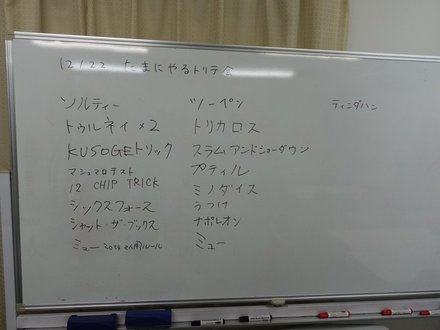 12/22 たまにやるトリテ会
ソルティー
トゥルネイ×2
KUSOGEトリック
マシュマロテスト
12 CHIP TRICK
シックスフォース
シャット・ザ・ブックス
ミュー 2024 2人用ルール
ツーペン
トリカロス
スラムアンドショーダウン
プティル
ミノダイス
うつけ
ナポレオン
ミュー
ティンダハン